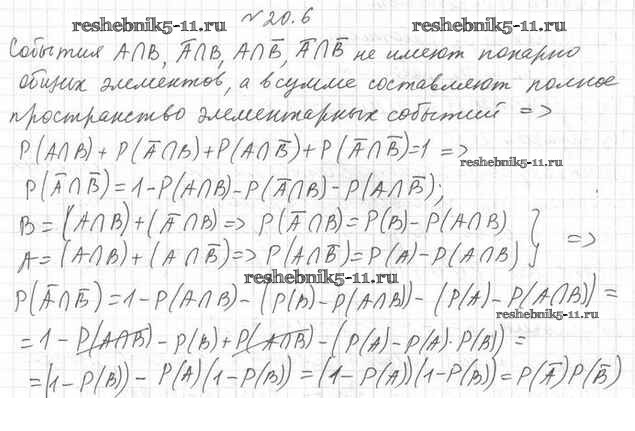 №20.6
reshebnik5-11.ru reshebnik5-11.ru
События A∩B, A̅∩B, A∩B̅, A̅∩B̅ не имеют попарно
общих элементов, а в сумме составляют полное
пространство элементарных событий =>
reshebnik5-11.ru
P(A∩B)+P(A̅∩B)+P(A∩B̅)+P(A̅∩B̅)=1 =>
reshebnik5-11.ru
P(A̅∩B̅)=1-P(A∩B)-P(A̅∩B)-P(A∩B̅);
B=(A∩B)+(A̅∩B)=> P(A̅∩B)=P(B)-P(A∩B)
A=(A∩B)+(A∩B̅)=> P(A∩B̅)=P(A)-P(A∩B) } =>
reshebnik5-11.ru
P(A̅∩B̅)=1-P(A∩B)-(P(B)-P(A∩B))-(P(A)-P(A∩B))=
reshebnik5-11.ru
=1-P(A∩B)-P(B)+P(A∩B)-(P(A)-P(A)·P(B))=
=(1-P(B))-P(A)(1-P(B))=(1-P(A))(1-P(B))=P(A̅)P(B̅)